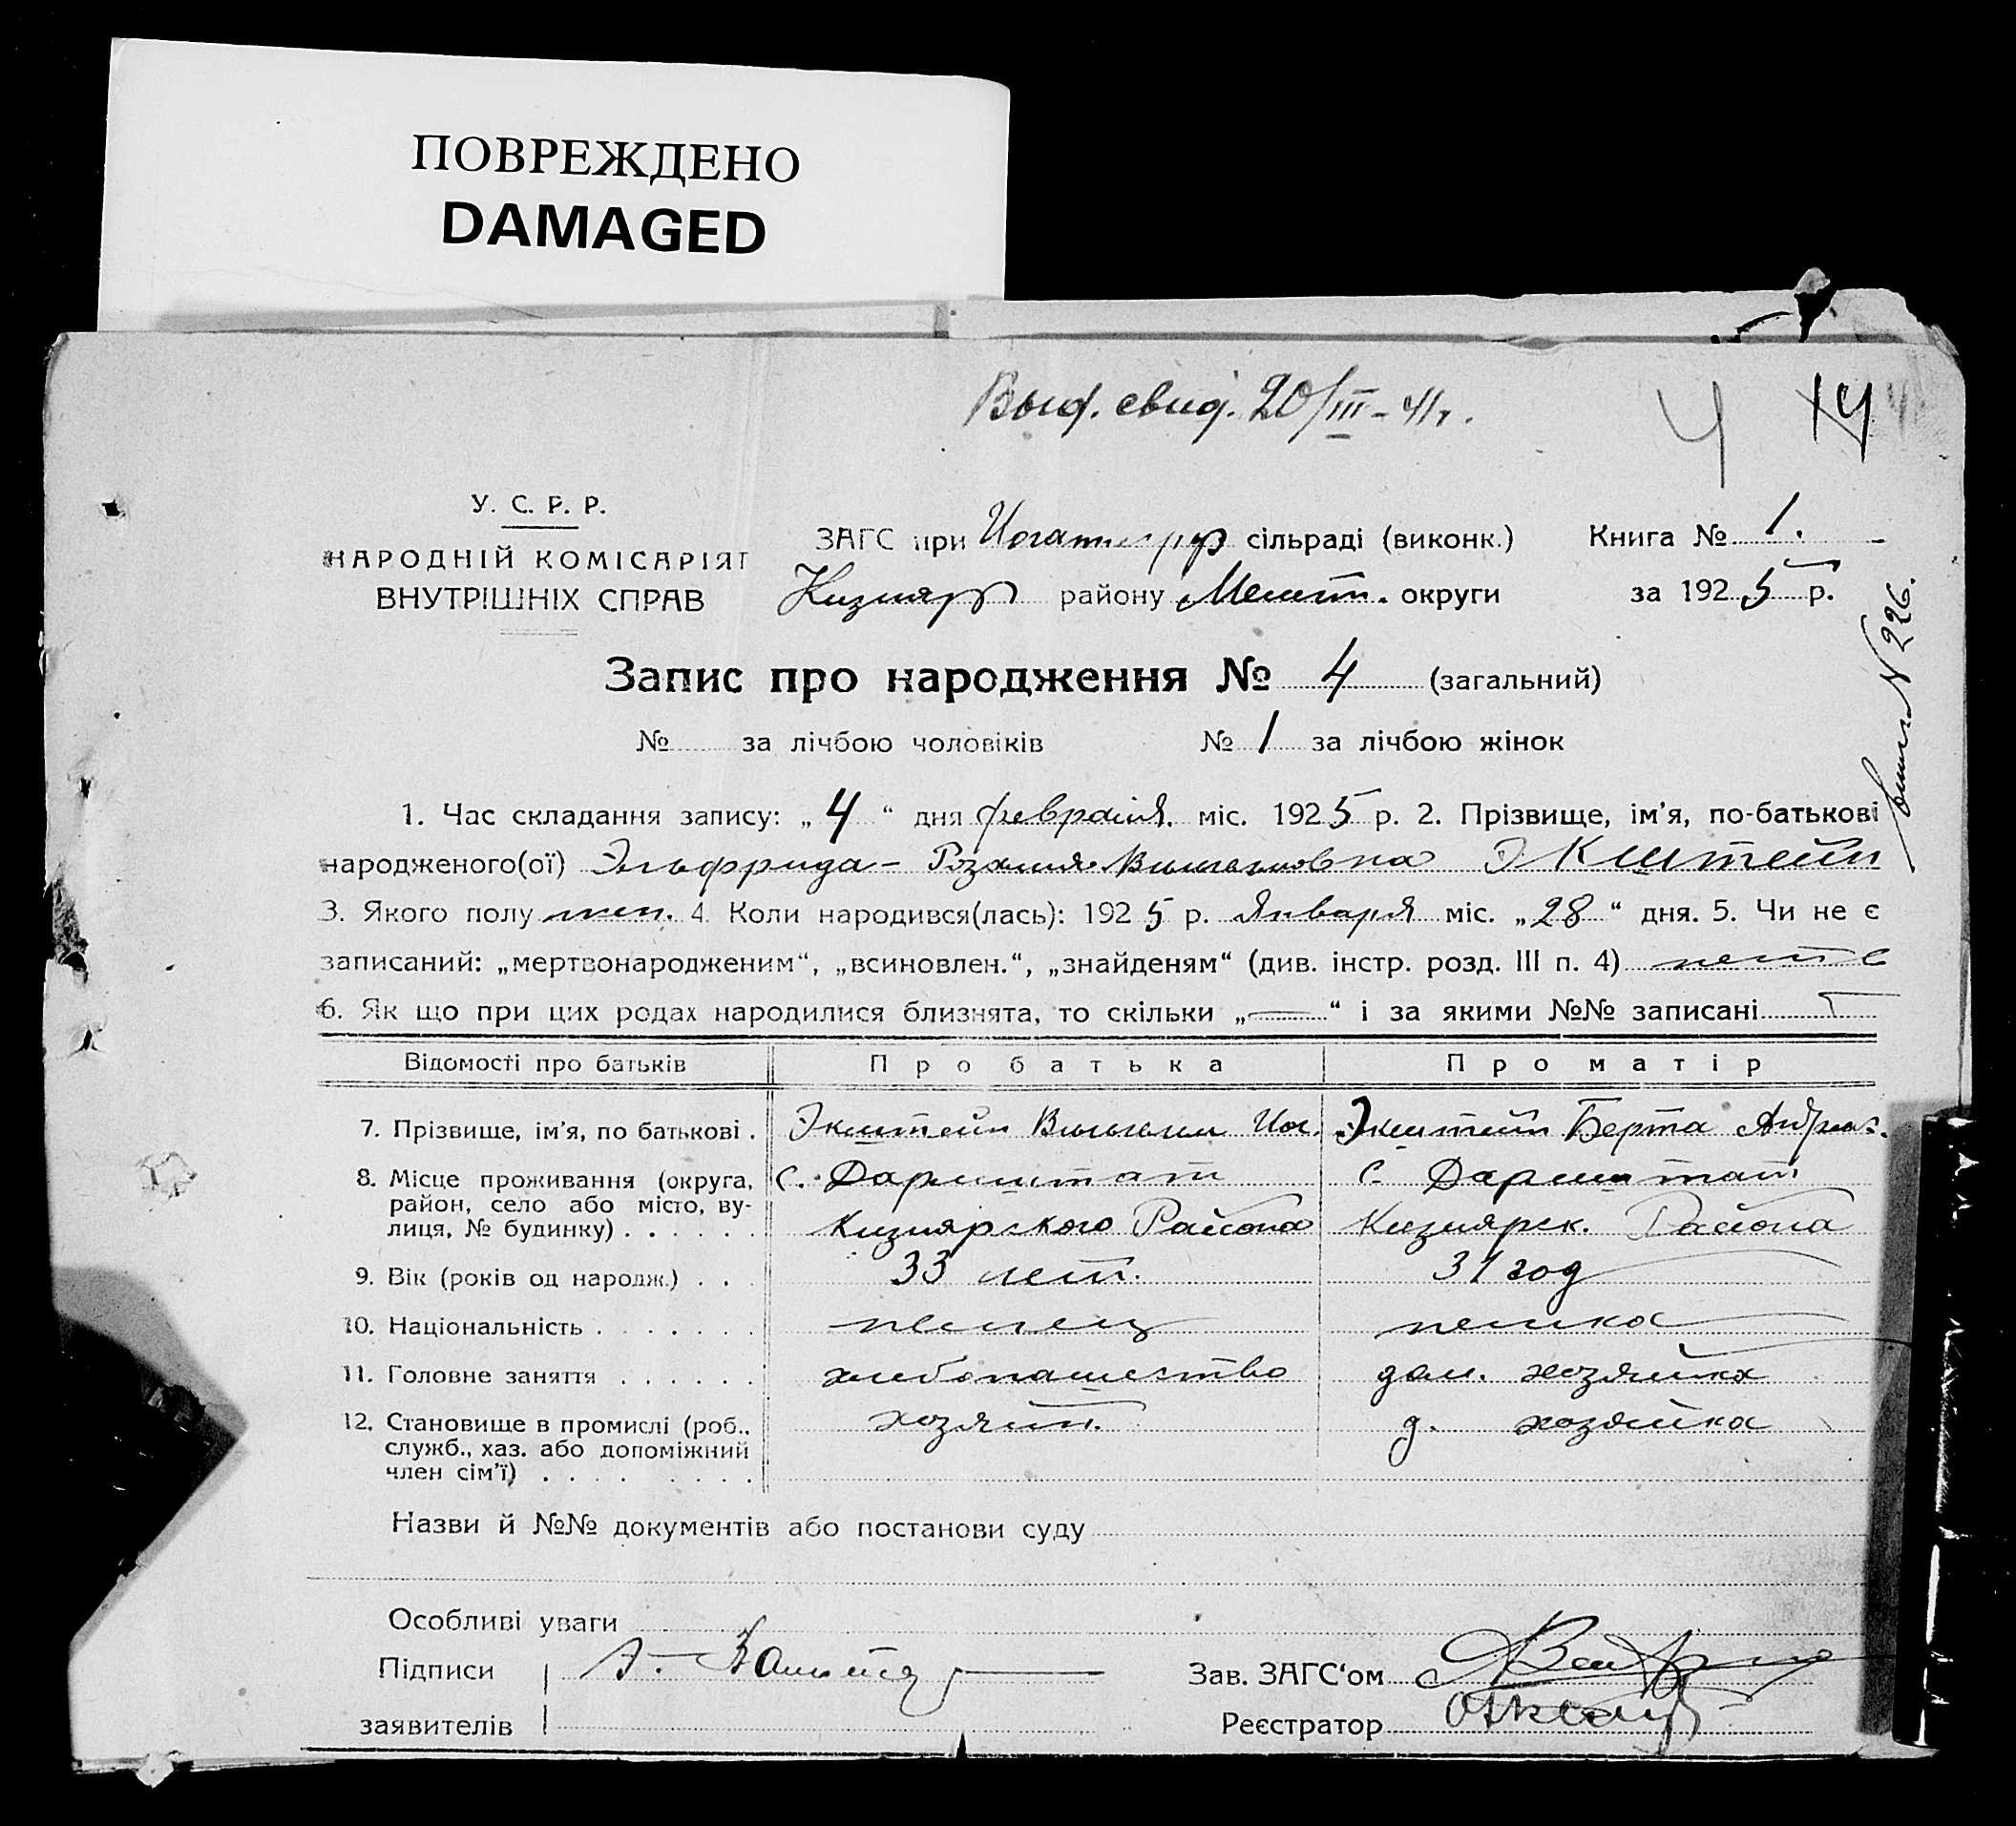 ПОВРЕЖДЕНО
DAMAGED
Выд. свид. 20/III-41г.
4
У. С. Р. Р.
НАРОДНІЙ КОМІСАРІЯТ
ВНУТРІШНІХ СПРАВ
ЗАГС при сільраді (виконк.) Книга № 1.
району Мелит. округи за 1925 р.
Запис про народження № 4 (загальний)
№ за лічбою чоловіків № 1 за лічбою жінок
N 226.
1. Час складання запису: „4“ дня февраля. міс. 1925 р. 2. Прізвище, ім'я, по-батькові
народженого(ої) Эльфрида - Розалия Вильгельмовна Экштейн
3. Якого полу жен. 4 Коли народився(лась): 1925 р. Января міс. „28“ дня. 5. Чи не є
записаний: „мертвонародженим“, „всиновлен.“, „знайденям“ (див. інстр. розд. III п. 4) нет
6. Як що при цих родах народилися близнята, то скільки „—“ і за якими №№ записані
Відомості про батьків Про батька Про матір
7. Прізвище, ім'я, по батькові . Экштейн Вильгельм Иог. Экштейн Берта Андреас.
8. Місце проживання (округа, район, село або місто, вулиця, № будинку) . . . . . .
с. Дармштат с. Дармштат
Кизиярского Района Кизиярск. Района
9. Вік (років од народж.) . . . 33 лет. 31 год
10. Національність . . . . . . . немец немка
11. Головне заняття . . . . . . хлебопашество дом. хозяйка
12. Становище в промислі (роб., служб., хаз. або допоміжний член сім'ї) . . . . . . . .
хозяин. д. хозяйка
Назви й №№ документів або постанови суду
Особливі уваги
Підписи
заявителів
Зав. ЗАГС‘ом
Реєстратор